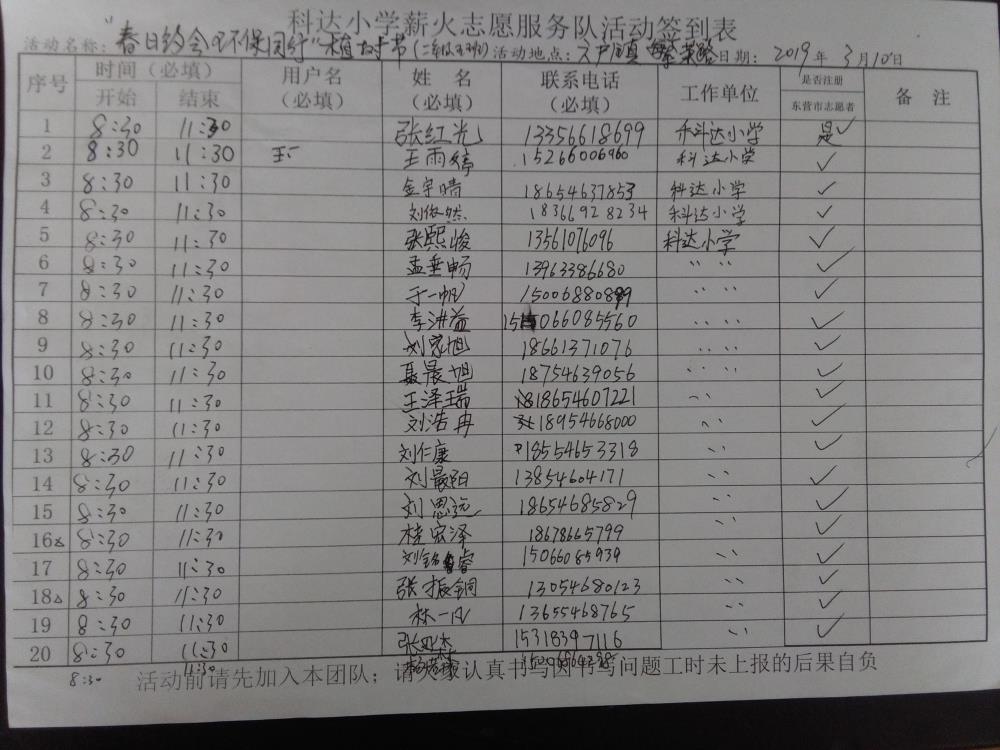 科达小学薪火志愿服务队活动签到表
活动名称："春日约会 环保同行"植树节 活动地点： 日期：2019年3月10日
序号 时间（必填） 用户名（必填） 姓名（必填） 联系电话（必填） 工作单位 是否注册东营市志愿者 备注
开始 结束
1 8:30 11:30 张红光 13356618699 科达小学 是✓
2 8:30 11:30 王雨婷 15266006960 科达小学 ✓
3 8:30 11:30 金宇晴 18654637853 科达小学 ✓
4 8:30 11:30 18366928234 科达小学 ✓
5 8:30 11:30 张熙峻 13561076096 科达小学 ✓
6 8:30 11:30 孟垂畅 13963386680 〃 〃 ✓
7 8:30 11:30 于一帆 〃 〃 ✓
8 8:30 11:30 李洪益 〃 〃 ✓
9 8:30 11:30 刘家旭 18661371076 〃 〃 ✓
10 8:30 11:30 聂晨旭 18754639056 〃 〃 ✓
11 8:30 11:30 王泽瑞 18654607221 〃 ✓
12 8:30 11:30 刘浩冉 18954668000 〃 ✓
13 8:30 11:30 刘仁康 18554653318 〃 ✓
14 8:30 11:30 刘晨阳 13854604171 〃 ✓
15 8:30 11:30 刘思远 18654685829 〃 ✓
16 8:30 11:30 桂宏泽 18678665799 〃 ✓
17 8:30 11:30 15066085939 〃 ✓
18 8:30 11:30 张振铜 13054680123 〃 ✓
19 8:30 11:30 林一凡 13655468765 〃 ✓
20 8:30 11:30 15318397116 〃 ✓
8:30 11:30
活动前请先加入本团队；请 认真书写因书写问题工时未上报的后果自负